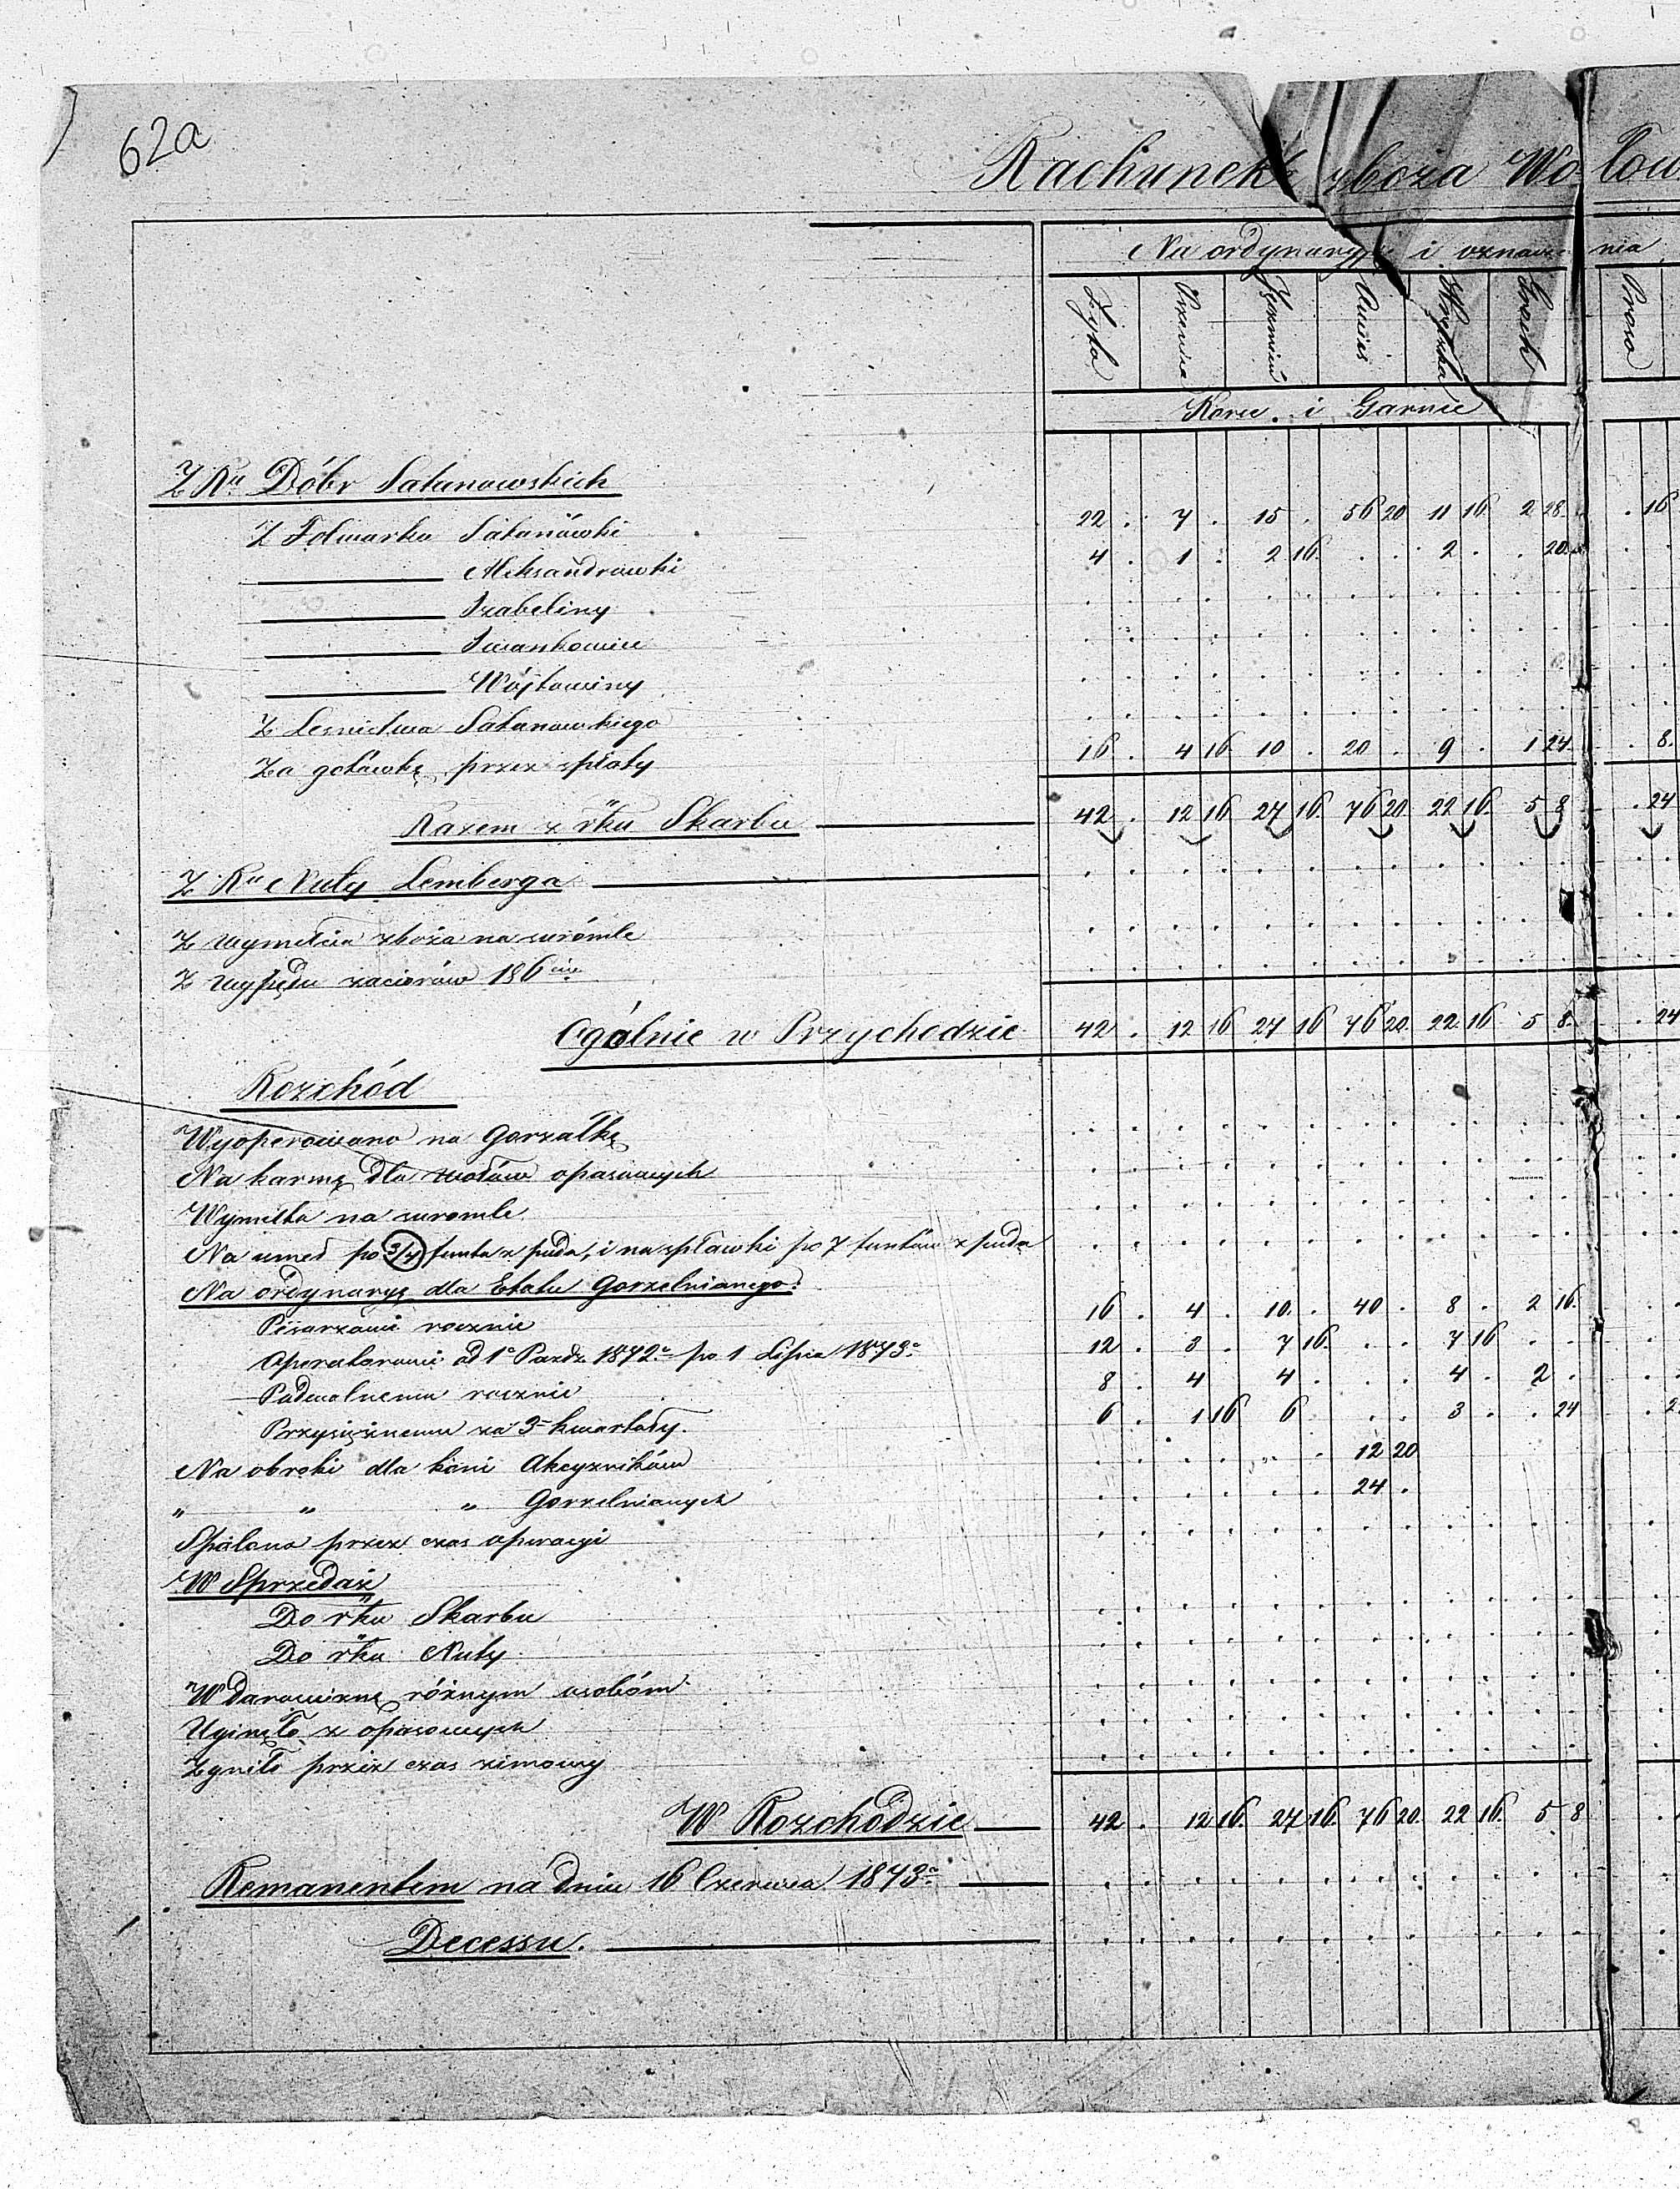 62a
Rachunek zboża Wo łow
Na ordynaryę i uznawa nia
Żyta Pszenica Jęczmień Owies Hreczka Groch Proso
Korce i Garnce
Z Ru Dóbr Satanowskich
Z Folwarku Satanówki 22 . 7 . 15 . 56 20 11 16 2 28 . 16
Aleksandrówki 4 . 1 . 2 16 . . 2 . . 20
Izabeliny
Iwankowiec
Wójtowiny
Z Leśnictwa Satanowskiego
Za gotówkę przez spłaty 16 . 4 16 10 . 20 . 9 . 1 24 . 8
Razem z rku Skarbu 42 . 12 16 27 16 76 20 22 16 5 8 . 24
Z Ru Nuty Lemberga
Z wymełcia zboża na surómle
Z wypędu zacierów 186
Ogólnie w Przychodzie 42 . 12 16 27 16 76 20 22 16 5 8 . 24
Rozchód
Wyoperowano na Gorzałkę
Na karmę dla wołów opasowych
Wymełta na suromle
Na umeł po 3/4 funta z puda, i na spławki po 7 funtów z puda
Na ordynaryę dla Etatu Gorzelnianego:
Pisarzowi rocznie 16 . 4 . 10 . 40 . 8 . 2 16
Operatorowi od 1o Paźdz. 1872o po 1 Lipca 1873o 12 . 3 . 7 16 . . 7 16 . .
Podwalnemu rocznie 8 . 4 . 4 . . . 4 . 2 .
Przysiężnemu za 3 kwartały. 6 . 1 16 6 . . . 3 . . 24 . 2
Na obroki dla koni Akcyzników 12 20
" " " Gorzelnianych 24 .
Spalono przez czas operacyi
W Sprzedaż
Do rku Skarbu
Do rku Nuty
W darowiznę różnym osobóm
Uginęło z opasowych
Zgniło przez czas zimowy
W Rozchodzie 42 . 12 16 27 16 76 20 22 16 5 8
Remanentem na dniu 16 Czerwca 1873o
Decessu.